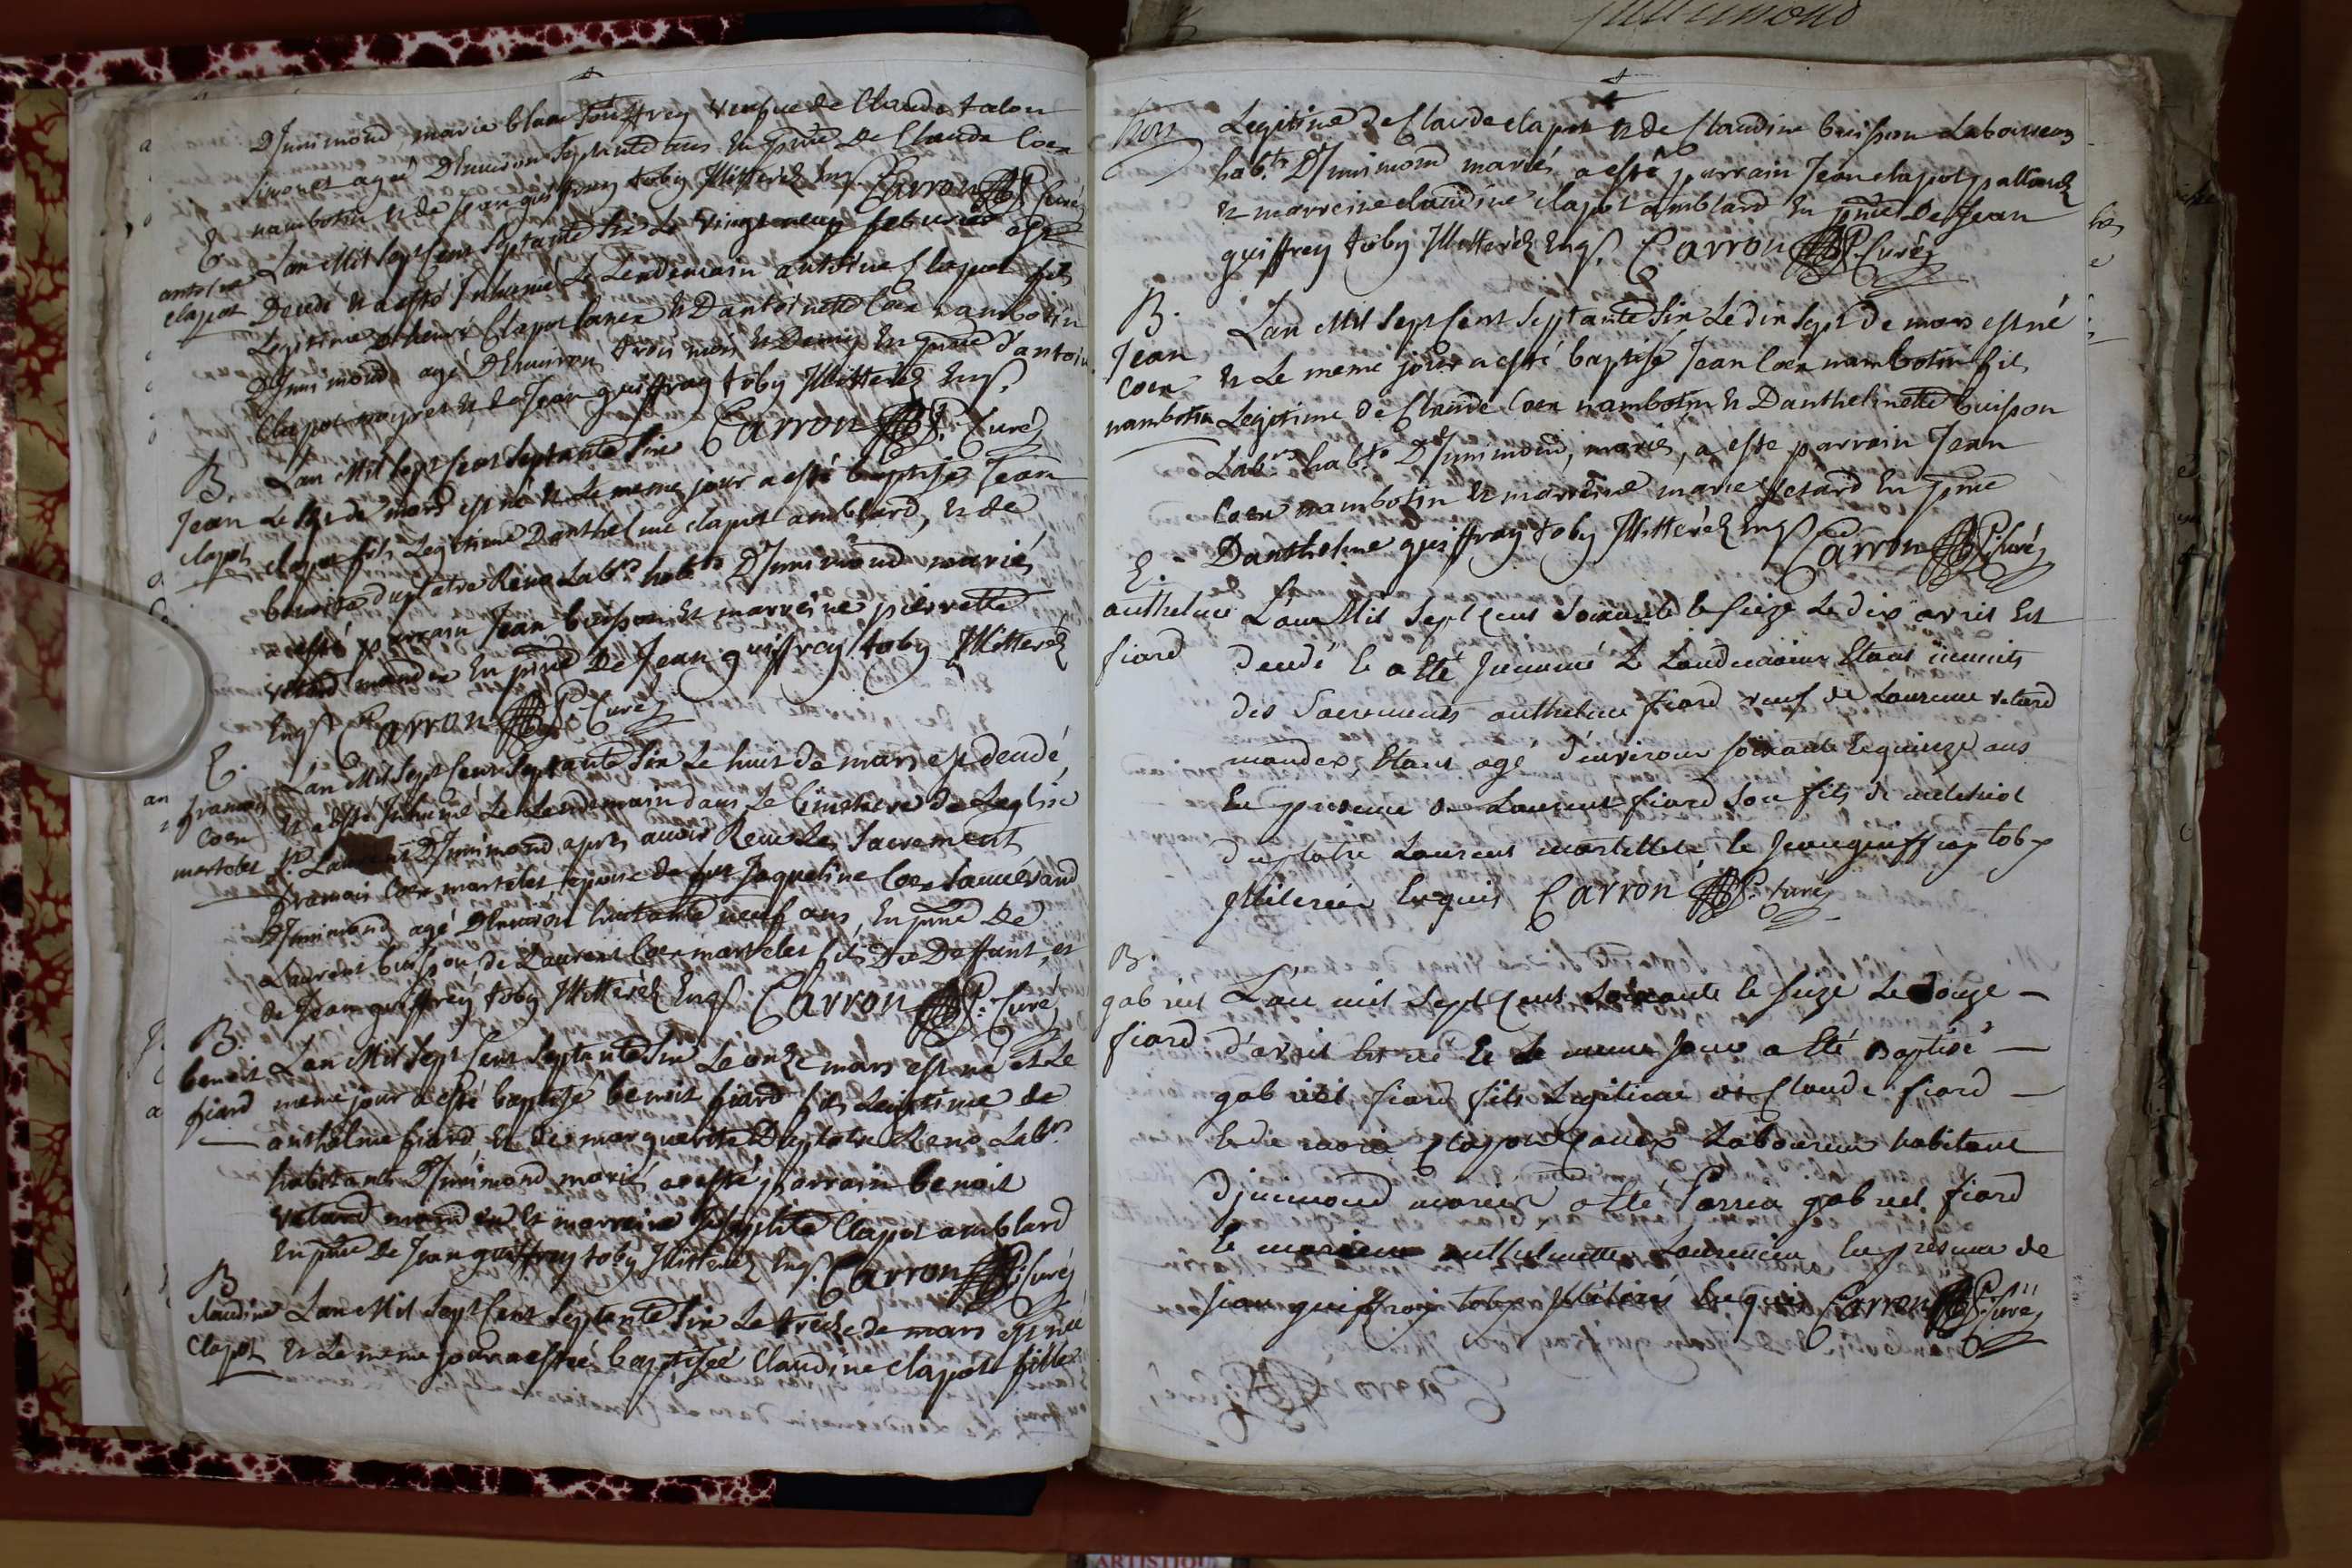 D'Jnnimond, marie blanc Jouffrey veufue de Claude talon
agé D'Enuiron septante ans En pnce De Claude Coen
nambotin & de Jean guiffrey toby Illitteréz Enqs. Carron P. Curéz
E
antoine
clapot
Lan Mil Sept Cent Septante Six Le vingt neuf feburier est
Decedé & a esté Inhumé Le Lendemain antoine Clapot fils
Legitime Clapot & D'antoinette Coen nambotin
D'Jnnimond, agé D'Enuiron trois mois & Demy En pnce d'antoine
Clapot & de Jean guiffray toby Illitteréz Enqs.
Carron P. Curéz
B.
Jean
clapot
Lan Mil Sept Cent Septante Six
Le de mars est né & Le meme jour a esté baptisé Jean
clapot fils Legitime D'anthelme clapot amblard, & de
benoite duplatre Reno Labrs habts D'Jnnimond mariés
a esté parrain Jean buisson & marreine pierrette
vétard mandex En pnce De Jean guiffray toby Illitteréz
Enqs Carron P. Curéz
E.
francois
Coen
martelet
Lan Mil Sept Cent Septante Six Le huit de mars est decedé,
& a esté Inhumé Le Lendemain dans Le Cimetiere de Leglise
St. Laurent D'Jnnimond apres auoir Receu Les Sacrement
francois Coen martelet, epoux de Jaqueline Coen
D'Jnnimond agé D'Enuiron huitante neuf ans, En pnce De
Laurent buisson, de Laurent Coen martelet fils Du Deffunt, et
de Jean guiffrey toby Illitteréz Enqs. Carron P. Curé
B.
benoit
fiard
Lan Mil Sept Cent Septante Six Le onze mars est né et Le
meme jour a esté baptisé benoit fiard fils Legitime de
anthelme fiard, & de marguerite Duplatre Reno Labrs
habitants D'Jnnimond mariés a esté parrain benoit
vétard mandex & marreine Clapot amblard
En pnce De Jean guiffrey toby Illitteréz Enqs. Carron P. Curéz
B
claudine
Clapot
Lan Mil Sept Cent Septante Six Le treize de mars est née
& Le meme jour a esté baptisée Claudine clapot fille
Legitime de Claude clapot & de Claudine buisson Laboureurs
habts D'Jnnimond mariés a esté parrain Jean clapot
& marreine claudine clapot amblard En pnce De Jean
guiffrey toby Illitteréz Enqs. Carron P. Curéz
B.
Jean
Coen
nambotin
Lan Mil Sept Cent Septante Six Le dix Sept de mars est né
& Le meme jour a esté baptisé Jean Coen nambotin fils
Legitime de Claude Coen nambotin & D'anthelmette buisson
Labrs habts D'Jnnimond, mariés, a esté parrain Jean
Coen nambotin & marreine marie En pnce
D'anthelme guiffray toby Illitteréz Enqs Carron P. Curéz
E.
anthelme
fiard
L'an Mil Sept Cent Soixante & Seize Le dix avril Est
decedé & a Eté Jnnumé Le Landemain Etant munits
des Sacrements anthelme fiard veuf de Laurence vetard
mandex, Etant agé d'environ soixante & quinze ans
En presence de Laurent fiard son fils de melchiot
duplatre Laurent & Jean guiffray toby
Enquis Carron P. Curéz
B.
gabriel
fiard
L'an mil Sept Cent Soixante & Seize Le Douze
d'avril Est né & Le meme Jour a Eté Baptisé
gabriel fiard fils Legitime de Claude fiard
& de marie Clapot Laboureurs habitant
D'jnnimond mariés, a Eté Parrain gabriel fiard
& marienne anthelmette En presence de
Jean guiffray toby Enquis Carron P. Curéz